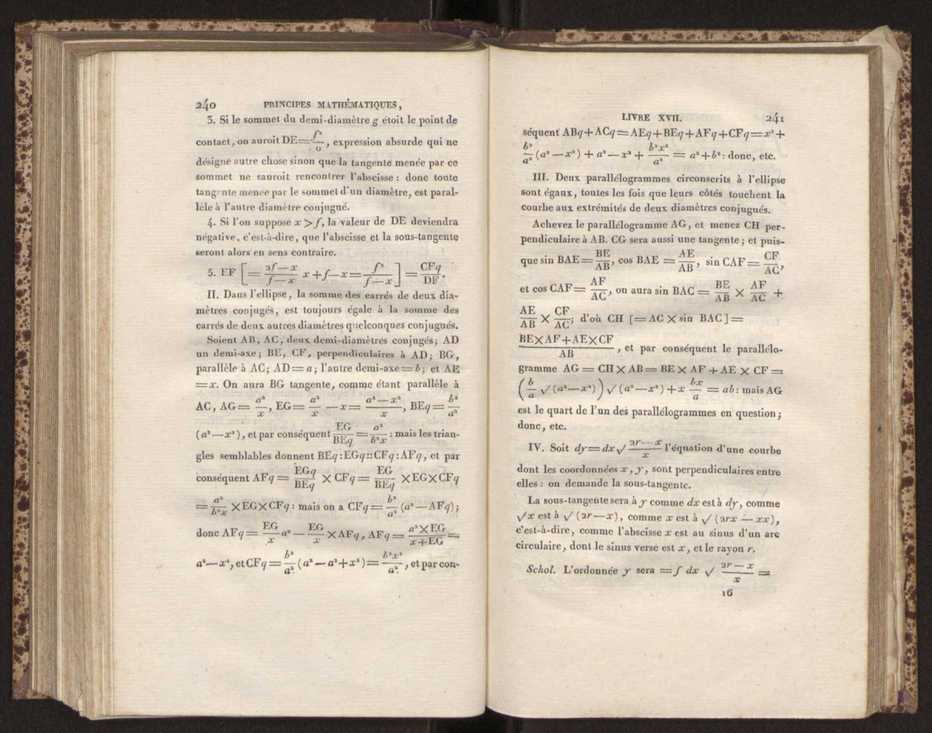 240 PRINCIPES MATHÉMATIQUES,
3. Si le sommet du demi-diamètre g étoit le point de
contact, on auroit DE = f²/0, expression absurde qui ne
désigne autre chose sinon que la tangente menée par ce
sommet ne sauroit rencontrer l'abscisse : donc toute
tangente menée par le sommet d'un diamètre, est paral-
lèle à l'autre diamètre conjugué.
4. Si l'on suppose x > f, la valeur de DE deviendra
négative, c'est-à-dire, que l'abscisse et la sous-tangente
seront alors en sens contraire.
5. EF [= (2f—x)/(f—x) x + f—x = f²/(f—x)] = CFq/DF.
II. Dans l'ellipse, la somme des carrés de deux dia-
mètres conjugués, est toujours égale à la somme des
carrés de deux autres diamètres quelconques conjugués.
Soient AB, AC, deux demi-diamètres conjugués; AD
un demi-axe; BE, CF, perpendiculaires à AD; BG,
parallèle à AC; AD = a; l'autre demi-axe = b; et AE
= x. On aura BG tangente, comme étant parallèle à
AC, AG = a²/x, EG = a²/x — x = (a² — x²)/x, BEq = b²/a²
(a²—x²), et par conséquent EG/BEq = a²/b²x : mais les trian-
gles semblables donnent BEq : EGq :: CFq : AFq, et par
conséquent AFq = EGq/BEq × CFq = EG/BEq × EG×CFq
= a²/b²x × EG×CFq : mais on a CFq = b²/a² (a²—AFq);
donc AFq = EG/x a² — EG/x × AFq, AFq = a²×EG/x+EG =
a²—x², et CFq = b²/a² (a² — a²+x²) = b²x²/a², et par con-
LIVRE XVII. 241
séquent ABq + ACq = AEq + BEq + AFq + CFq = x² +
b²/a² (a² — x²) + a² — x² + b²x²/a² = a² + b² : donc, etc.
III. Deux parallélogrammes circonscrits à l'ellipse
sont égaux, toutes les fois que leurs côtés touchent la
courbe aux extrémités de deux diamètres conjugués.
Achevez le parallélogramme AG, et menez CH per-
pendiculaire à AB. CG sera aussi une tangente; et puis-
que sin BAE = BE/AB, cos BAE = AE/AB, sin CAF = CF/AC,
et cos CAF = AF/AC, on aura sin BAC = BE/AB × AF/AC +
AE/AB × CF/AC; d'où CH [= AC × sin BAC] =
BE×AF+AE×CF/AB, et par conséquent le parallélo-
gramme AG = CH × AB = BE × AF + AE × CF =
(b/a √(a²—x²)) √(a²—x²) + x bx/a = ab : mais AG
est le quart de l'un des parallélogrammes en question;
donc, etc.
IV. Soit dy = dx √ (2r — x)/x l'équation d'une courbe
dont les coordonnées x, y, sont perpendiculaires entre
elles : on demande la sous-tangente.
La sous-tangente sera à y comme dx est à dy, comme
√x est à √(2r—x), comme x est à √(2rx — xx),
c'est-à-dire, comme l'abscisse x est au sinus d'un arc
circulaire, dont le sinus verse est x, et le rayon r.
Schol. L'ordonnée y sera = ∫ dx √ (2r — x)/x =
16